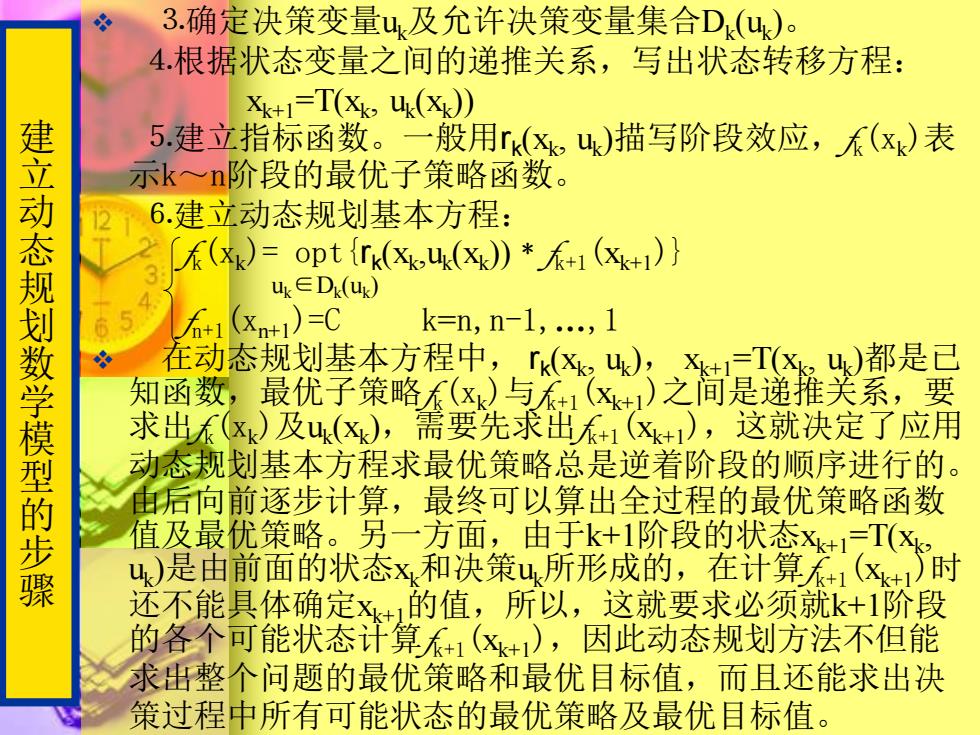 建立动态规划数学模型的步骤
❖ 3.确定决策变量uk及允许决策变量集合Dk(uk)。
4.根据状态变量之间的递推关系，写出状态转移方程：
xk+1=T(xk, uk(xk))
5.建立指标函数。一般用rk(xk, uk)描写阶段效应，fk(xk)表
示k～n阶段的最优子策略函数。
6.建立动态规划基本方程：
fk(xk)= opt{rk(xk,uk(xk)) * fk+1(xk+1)}
uk∈Dk(uk)
fn+1(xn+1)=C k=n,n-1,…,1
❖ 在动态规划基本方程中， rk(xk, uk)， xk+1=T(xk, uk)都是已
知函数，最优子策略fk(xk)与fk+1(xk+1)之间是递推关系，要
求出fk(xk)及uk(xk)，需要先求出fk+1(xk+1)，这就决定了应用
动态规划基本方程求最优策略总是逆着阶段的顺序进行的。
由后向前逐步计算，最终可以算出全过程的最优策略函数
值及最优策略。另一方面，由于k+1阶段的状态xk+1=T(xk,
uk)是由前面的状态xk和决策uk所形成的，在计算fk+1(xk+1)时
还不能具体确定xk+1的值，所以，这就要求必须就k+1阶段
的各个可能状态计算fk+1(xk+1)，因此动态规划方法不但能
求出整个问题的最优策略和最优目标值，而且还能求出决
策过程中所有可能状态的最优策略及最优目标值。